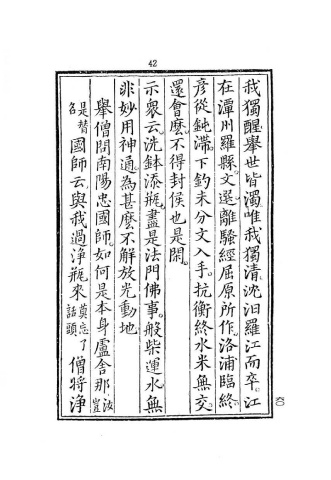 42
我獨醒舉世皆濁唯我獨清沈汨羅江而卒江
在潭州羅縣文選離騷經屈原所作洛浦臨終
彥從鈍滯下釣未分文入手抗衡終水米無交
還會麼不得封侯也是閑
示衆云洗鉢添瓶盡是法門佛事般柴運水無
非妙用神通為甚麼不解放光動地
舉僧問南陽忠國師如何是本身盧舍那汝豈
是替名國師云與我過淨瓶來莫忘話頭了僧將淨